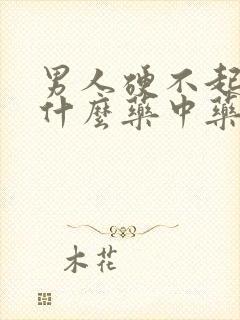 男人硬不起
什麼藥中藥
木花